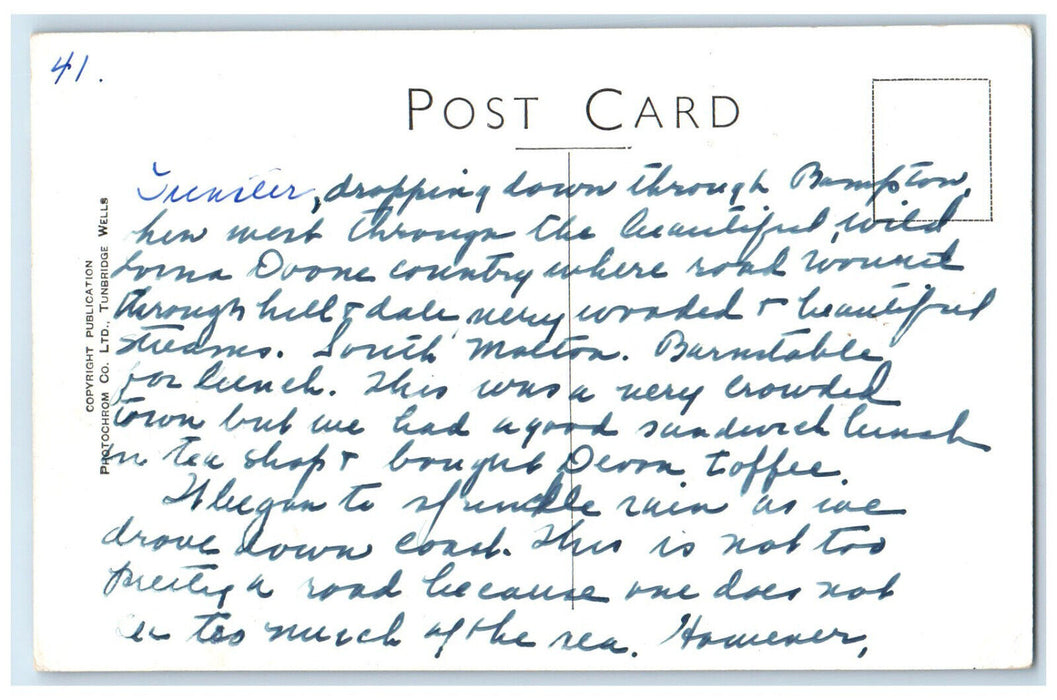 41.
POST CARD
COPYRIGHT PUBLICATION
PHOTOCHROM CO. LTD., TUNBRIDGE WELLS
dropping down through Bampton,
hen west through the beautiful, wild
Lorna Doone country where road wound
through hill & dale very wooded & beautiful
streams. South Molton. Barnstable
for lunch. This was a very crowded
town but we had a good sandwich lunch
in tea shop & bought Devon toffee.
It began to sprinkle rain as we
drove down coast. This is not too
pretty a road because one does not
too much of the sea. However,